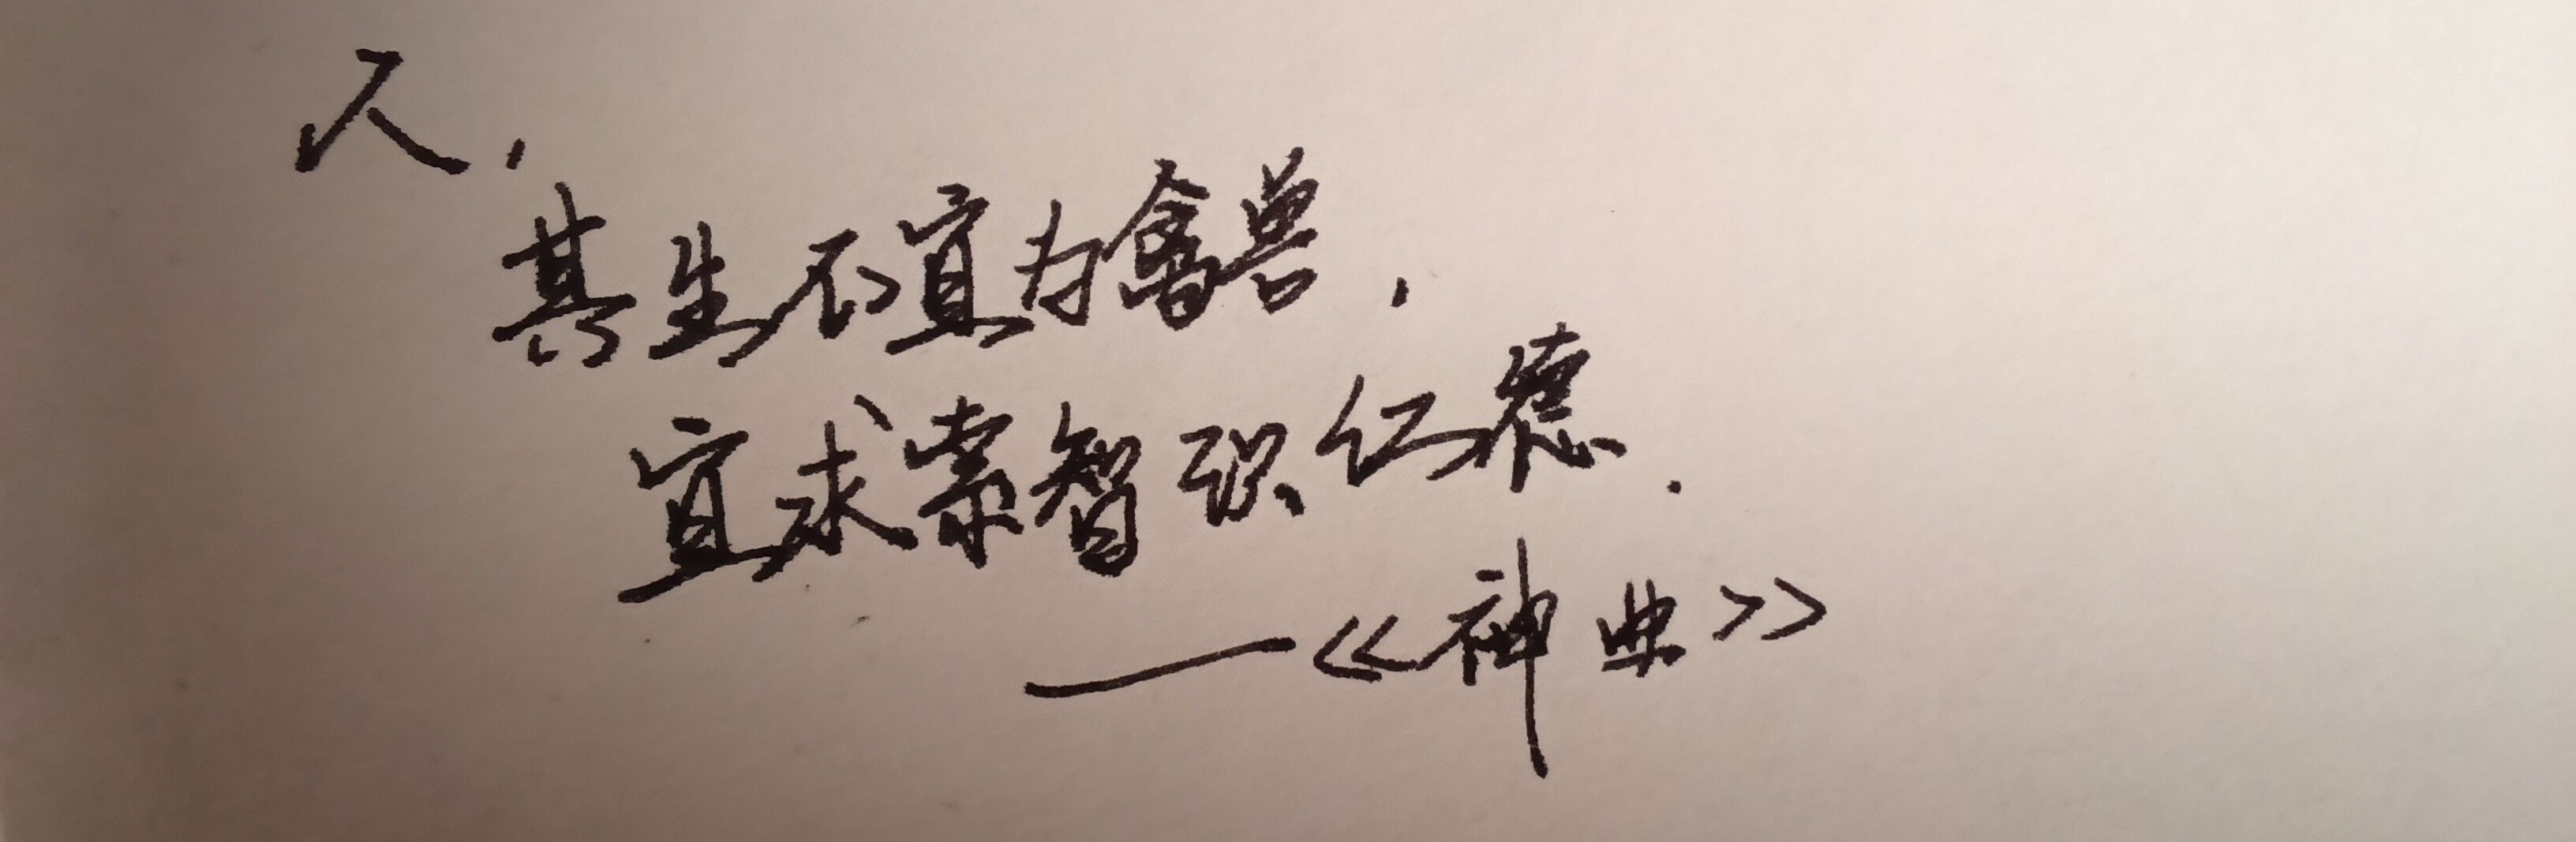 人，
其生不宜为禽兽，
宜求索智识仁德.
——《神曲》